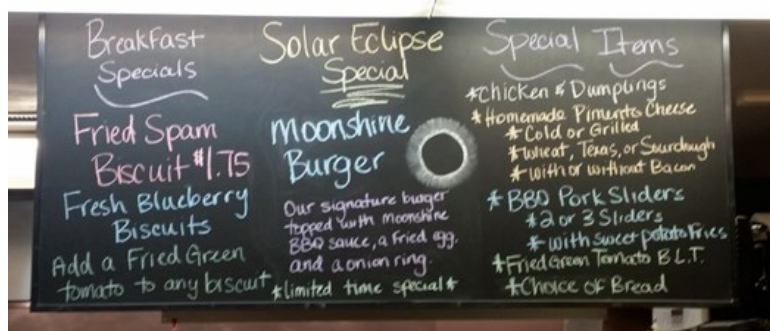 Breakfast
Specials
Fried Spam
Biscuit $1.75
Fresh Blueberry
Biscuits
Add a Fried Green
tomato to any biscuit
Solar Eclipse
Special
Moonshine
Burger
Our signature burger
topped with moonshine
BBQ sauce, a fried egg,
and a onion ring.
*limited time special*
Special Items
*Chicken & Dumplings
*Homemade Pimento Cheese
*Cold or Grilled
*Wheat, Texas, or Sourdough
*with or without Bacon
*BBQ Pork Sliders
*2 or 3 Sliders
*with sweet potato fries
*Fried Green Tomato B.L.T.
*Choice of Bread